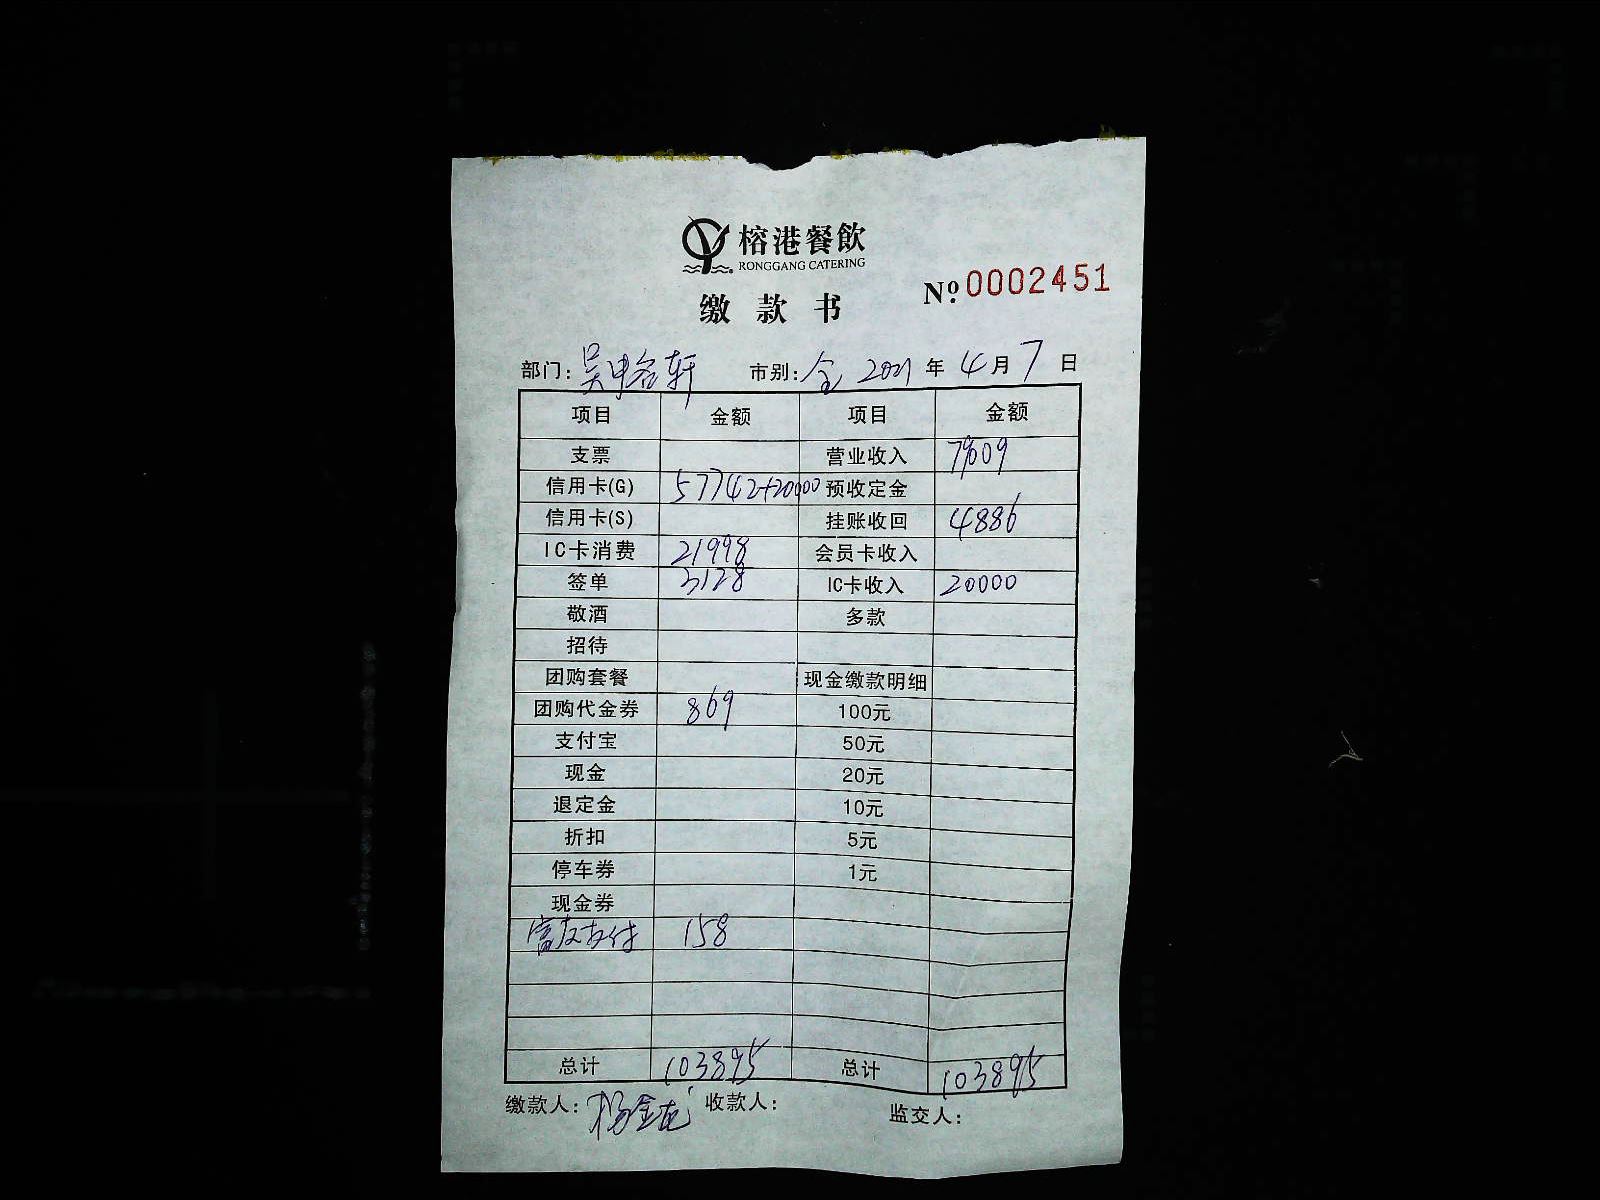 榕港餐飲
RONGGANG CATERING
缴款书
Nº 0002451
部门: 市别: 全 2021 年 4 月 7 日
项目 金额 项目 金额
支票 营业收入 79009
信用卡(G) 57742+20000 预收定金
信用卡(S) 挂账收回 4886
IC卡消费 21998 会员卡收入
签单 3128 IC卡收入 20000
敬酒 多款
招待
团购套餐 现金缴款明细
团购代金券 869 100元
支付宝 50元
现金 20元
退定金 10元
折扣 5元
停车券 1元
现金券
富友支付 158
总计 103895 总计 103895
缴款人: 杨金龙 收款人: 监交人: